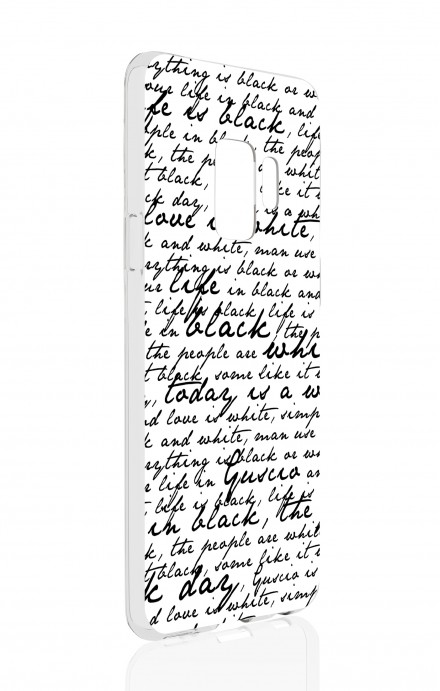 ything is black or w
our life in black and
fe is black, life
ple in bl the peop
k, the pe whit
t black, ke it
ck day, is a wh
love i white,
k and white, man use
erything is black or w
ur life in black and
t life is black, life is
e in black, the p
the people are whi
t black, some like it
, today is a w
d love is white, simp
k and white, man use
rything is black or w
r life in Guscio an
t life is black, life is
in black, the
k, the people are whit
t black, some like it
k day, Guscio is
d love is white, simp